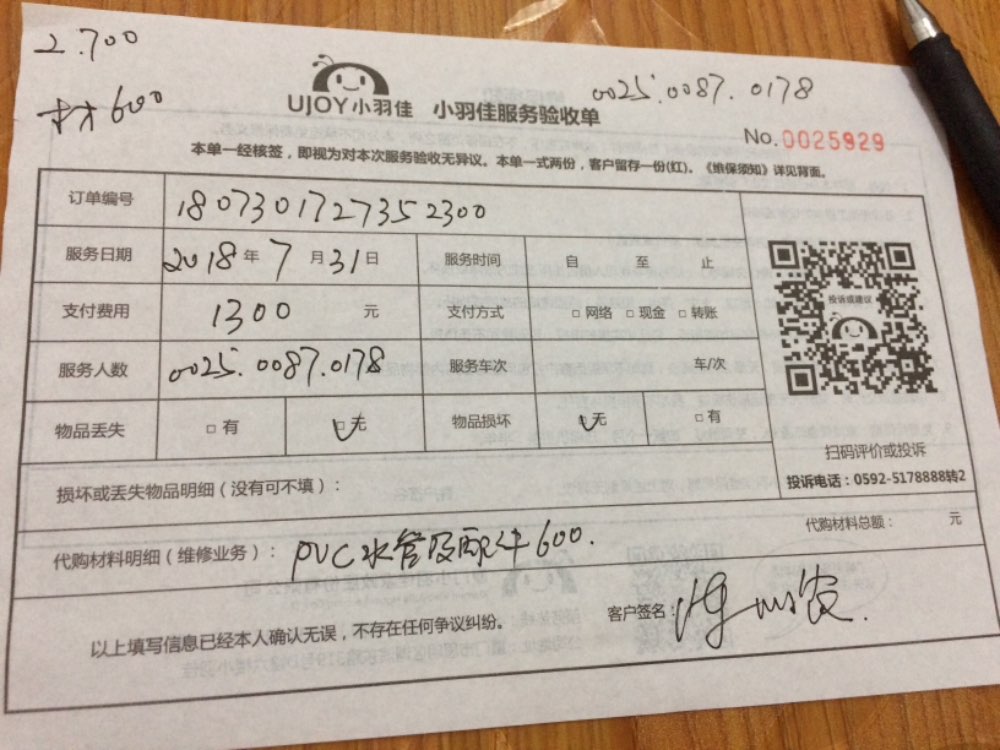 2.700
材600
UJOY小羽佳 小羽佳服务验收单
0025.0087.0178
No.0025929
本单一经核签，即视为对本次服务验收无异议。本单一式两份，客户留存一份(红)。《维保须知》详见背面。
订单编号 180730172735 2300
服务日期 2018年7月31日 服务时间 自 至 止
支付费用 1300 元 支付方式 □ 网络 □ 现金 □ 转账
投诉或建议
服务人数 0025.0087.0178 服务车次 车/次
物品丢失 □ 有 □ 无 物品损坏 □ 无 □ 有
扫码评价或投诉
投诉电话：0592-5178888转2
损坏或丢失物品明细（没有可不填）：
代购材料明细（维修业务）： PVC水管及配件600.
代购材料总额： 元
以上填写信息已经本人确认无误，不存在任何争议纠纷。
客户签名：